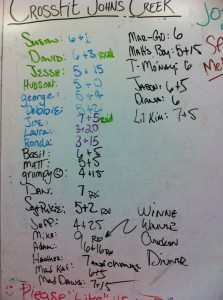 CrossFit Johns Creek
Susan: 6+2
David: 6+8 Rxd
Jesse: 5+15
Hudson: 5+0
george:
Debbie:
Joe: 7+5 Rxd
Laura: 3+20
Ronda: 3+15
Basil: 6+5
Matt: 5+3
grumpy: 4+15
Dan: 7 Rx
5+2 Rx
Jeff: 4+25
Mike: 9 Rx
Adam: 6+16 Rx
Heather:
Mad Kat: 6+5
Mad Dawg: 7+15
Mar-Go: 6
5+15
T-Money: 6
Jason: 6+5
Diana: 6
Lil Kim: 7+5
Winne
Winne
Chicken
Dinner
Please "Like" us